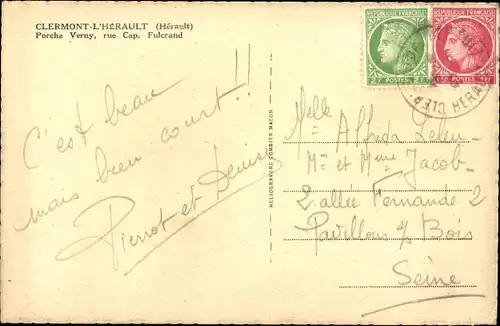 CLERMONT-L'HÉRAULT (Hérault)
Porche Verny, rue Cap. Fulcrand
C'est beau
mais bien court!!
Pierrot et Denise
HELIOGRAVURE COMBIER MACON
RÉPUBLIQUE FRANÇAISE
2F POSTES 2F
RÉPUBLIQUE FRANÇAISE
POSTES 1F
HÉRAULT
Melle Alfreda
Mr et Mme Jacob
2 allée Fernande 2
Pavillons s/s Bois
Seine